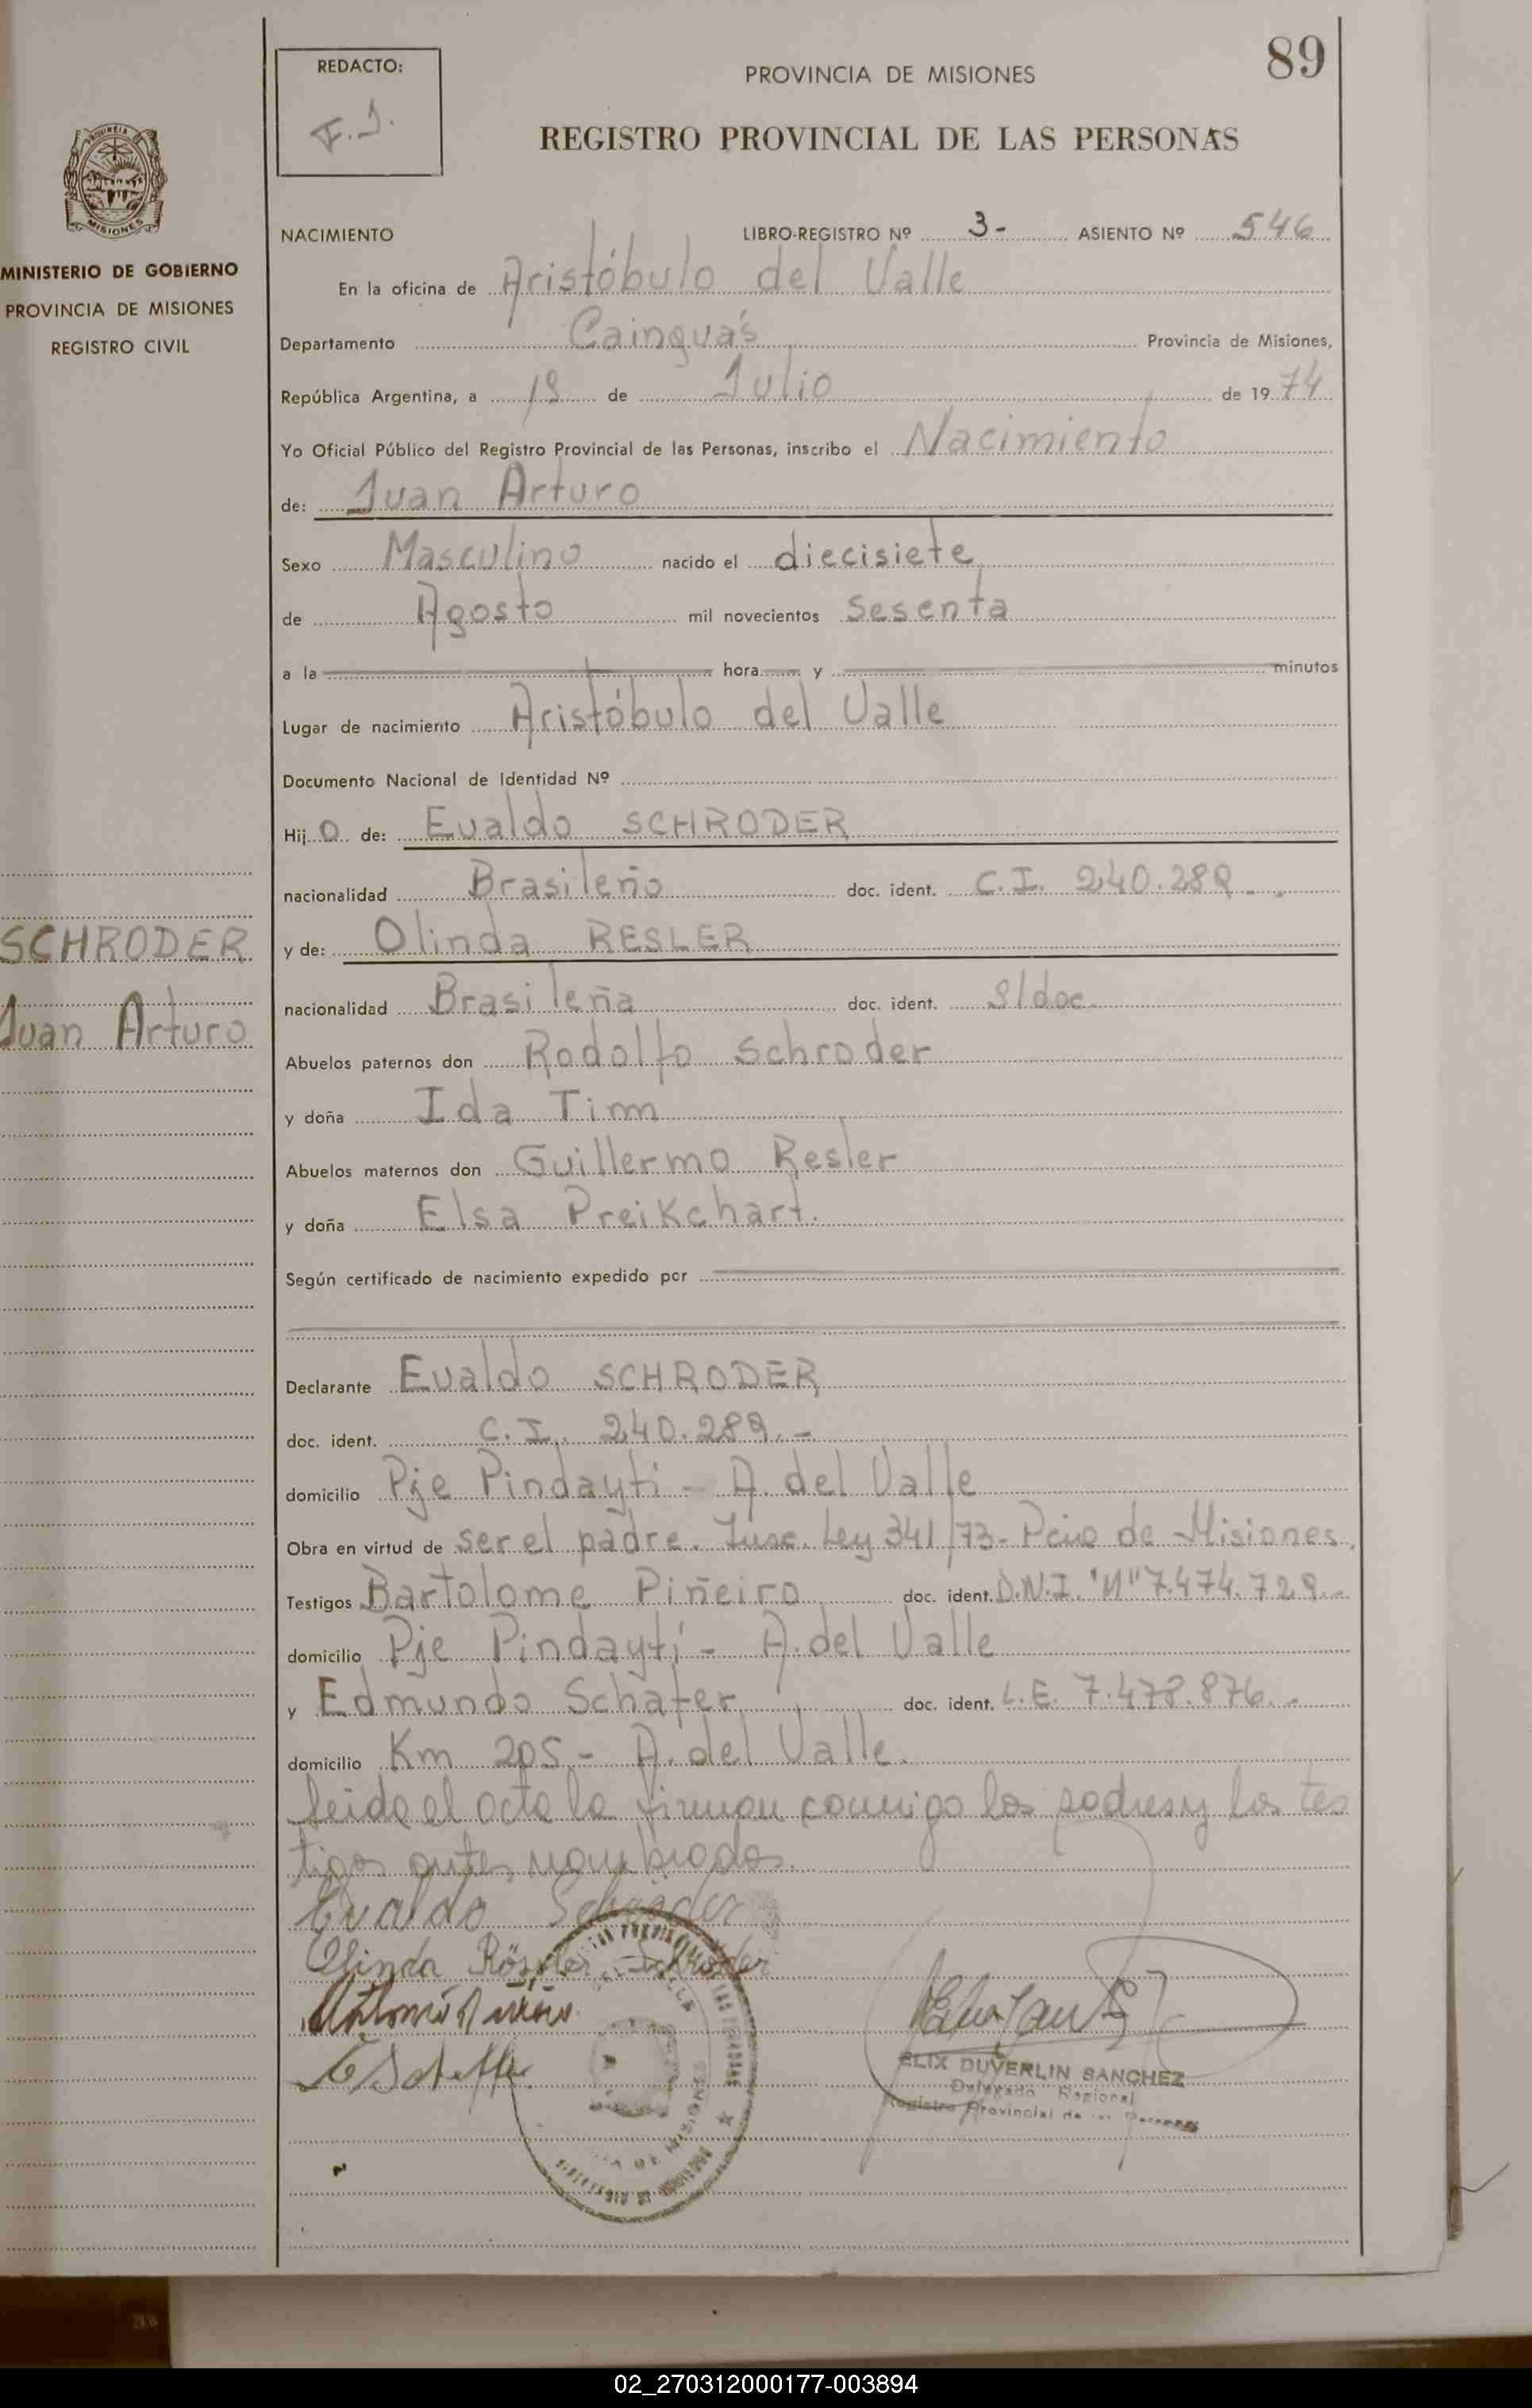 89
REDACTO:
F.J.
PROVINCIA DE MISIONES
REGISTRO PROVINCIAL DE LAS PERSONAS
PROVINCIA
MISIONES
MINISTERIO DE GOBIERNO
PROVINCIA DE MISIONES
REGISTRO CIVIL
SCHRODER
Juan Arturo
NACIMIENTO LIBRO-REGISTRO Nº 3- ASIENTO Nº 546
En la oficina de Aristóbulo del Valle
Departamento Cainguás Provincia de Misiones,
República Argentina, a de Julio de 1974
Yo Oficial Público del Registro Provincial de las Personas, inscribo el Nacimiento
de: Juan Arturo
Sexo Masculino nacido el diecisiete
de Agosto mil novecientos sesenta
a la hora y minutos
Lugar de nacimiento Aristóbulo del Valle
Documento Nacional de Identidad Nº
Hijo de: Evaldo SCHRODER
nacionalidad Brasileño doc. ident. C.I. 240.289.-
y de: Olinda RESLER
nacionalidad Brasileña doc. ident. S/doc.
Abuelos paternos don Rodolfo Schroder
y doña Ida Timm
Abuelos maternos don Guillermo Resler
y doña Elsa Preikchart.
Según certificado de nacimiento expedido por
Declarante Evaldo SCHRODER
doc. ident. C.I. 240.289.-
domicilio Pje Pindayti - A. del Valle
Obra en virtud de ser el padre. Insc. Ley 341/73- Pcia de Misiones.
Testigos Bartolome Piñeiro doc. ident. D.N.I. "M" 7.474.729.-
domicilio Pje Pindaytí - A. del Valle
y Edmundo Schafer doc. ident. L.E. 7.478.876.-
domicilio Km 205 - A. del Valle.
leida el acta la firman conmigo los padres y los tes
tigos antes nombrados.
Evaldo Schröder
Olinda Rösler Schröder
ELIX DUVERLIN SANCHEZ
Delegado Regional
Registro Provincial de las Personas
02_270312000177-003894